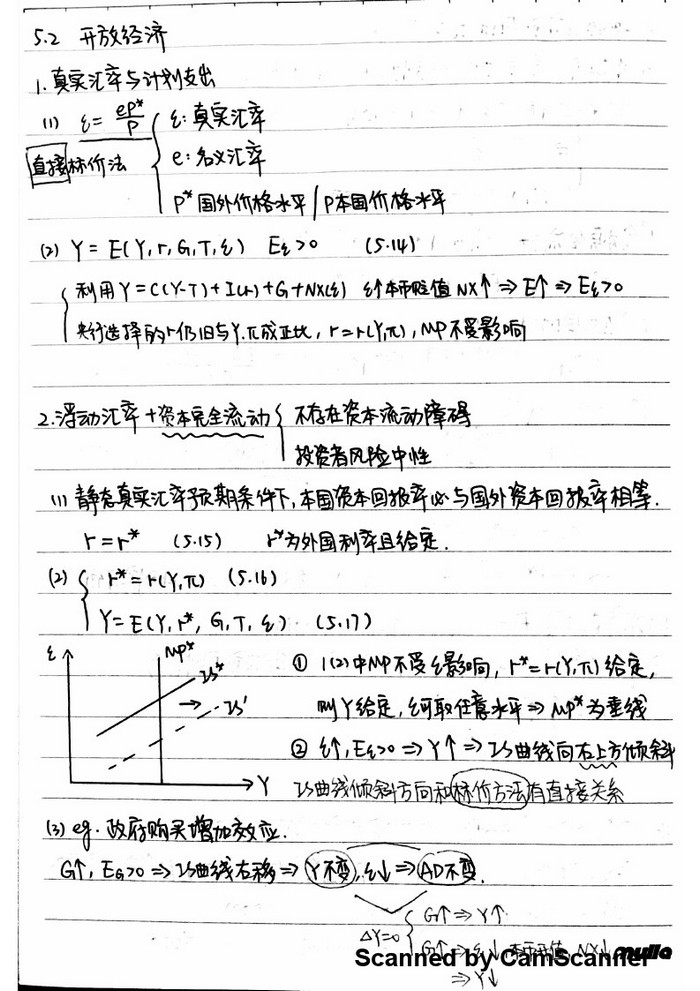 5.2 开放经济
1. 真实汇率与计划支出
(1) ε = eP*/P { ε: 真实汇率
直接标价法 e: 名义汇率
P* 国外价格水平 / P本国价格水平
(2) Y = E(Y, r, G, T, ε) Eε>0 (5.14)
{ 利用 Y=C(Y-T)+I(r)+G+NX(ε) ε↑本币贬值 NX↑ ⇒ E↑ ⇒ Eε>0
央行选择的r仍旧与Y.π成正比, r=r(Y,π), MP不受影响
2. 浮动汇率+资本完全流动 { 不存在资本流动障碍
投资者风险中性
(1) 静态真实汇率预期条件下, 本国资本回报率必与国外资本回报率相等.
r=r* (5.15) r*为外国利率且给定.
(2) { r*=r(Y,π) (5.16)
Y=E(Y, r*, G, T, ε) (5.17)
ε MP* IS* IS' Y
① 1(2)中MP不受ε影响, r*=r(Y,π)给定,
则Y给定, ε可取任意水平 ⇒ MP*为垂线
② ε↑, Eε>0 ⇒ Y↑ ⇒ IS曲线向右上方倾斜
IS曲线倾斜方向和标价方法有直接关系
(3) eg. 政府购买增加效应.
G↑, EG>0 ⇒ IS曲线右移 ⇒ Y不变, ε↓ ⇒ AD不变.
ΔY=0 { G↑ ⇒ Y↑
G↑ ⇒ ε↓ 本币升值 NX↓
⇒ Y↓
mulla
Scanned by CamScanner